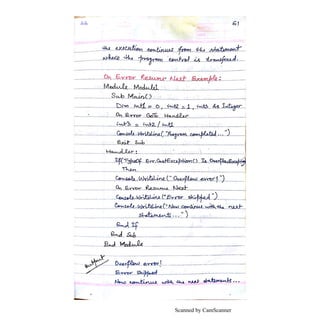 61
the execution continues from the statement
where the program control is transfered.
On Error Resume Next Example:
Module Module1
Sub Main()
Dim int1 = 0, int2 = 1, int3 As Integer
On Error GoTo Handler
int3 = int2 / int1
Console.WriteLine("Program completed...")
Exit Sub
Handler:
If(TypeOf Err.GetException() Is OverflowException
Then
Console.WriteLine("Overflow error!")
On Error Resume Next
Console.WriteLine("Error skipped")
Console.WriteLine("Now continue with the next
statements...")
End If
End Sub
End Module
Output
Overflow error!
Error Skipped
Now continue with the next statements...
Scanned by CamScanner